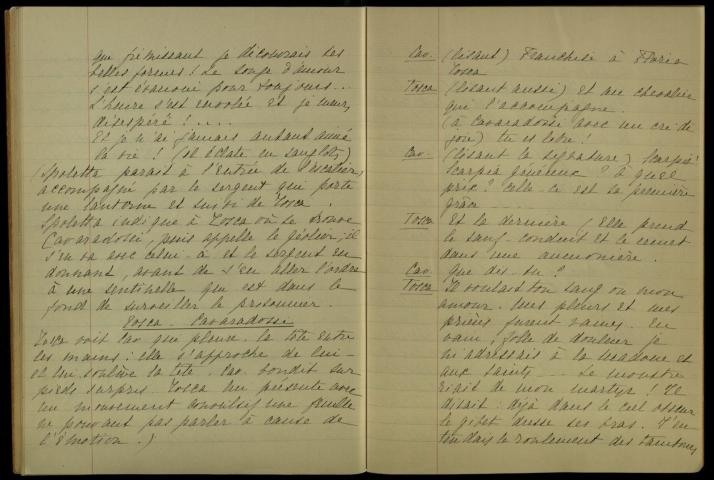 que frémissant je découvrais ses
belles formes ! Le songe d'amour
s'est évanoui pour toujours ...
L'heure s'est envolée et je meurs,
désespéré ! ....
Et je n'ai jamais autant aimé
la vie ! (Il éclate en sanglots)
(Spoletta parait à l'entrée de l'escalier,
accompagné par le sergent qui porte
une lanterne et suivi de Tosca.
Spoletta indique à Tosca où se trouve
Cavaradossi, puis appelle le géolier, il
s'en va avec celui-ci et le sergent en
donnant, avant de s'en aller l'ordre
à une sentinelle qui est dans le
fond de surveiller le prisonnier.
Tosca - Cavaradossi
Tosca voit Cav. qui pleure, la tête entre
les mains : elle s'approche de lui -
et lui soulève la tête. Cav. bondit sur
pieds surpris. Tosca lui présente avec
un mouvement convulsif une feuille
ne pouvant pas parler à cause de
l'émotion.)
Cav. (lisant) Franchise à Floria
Tosca
Tosca (lisant aussi) et au chevalier
qui l'accompagne.
(à Cavaradossi avec un cri de
joie) tu es libre !
Cav. (lisant la signature) Scarpia !
Scarpia généreux ? à quel
prix ? Celle-ci est sa première
grâce ....
Tosca Et la dernière ! (Elle prend
le sauf-conduit et le remet
dans une aumonière.
Cav. Que dis-tu ?
Tosca Il voulait ton sang ou mon
amour. Mes pleurs et mes
prières furent vaines. En
vain, folle de douleur je
m'adressais à la Madone et
aux Saints .... Le monstre
riait de mon martyr ! Il
disait : déjà dans le ciel obscur
le gibet dresse ses bras. J'en
tendais le roulement des tambours,